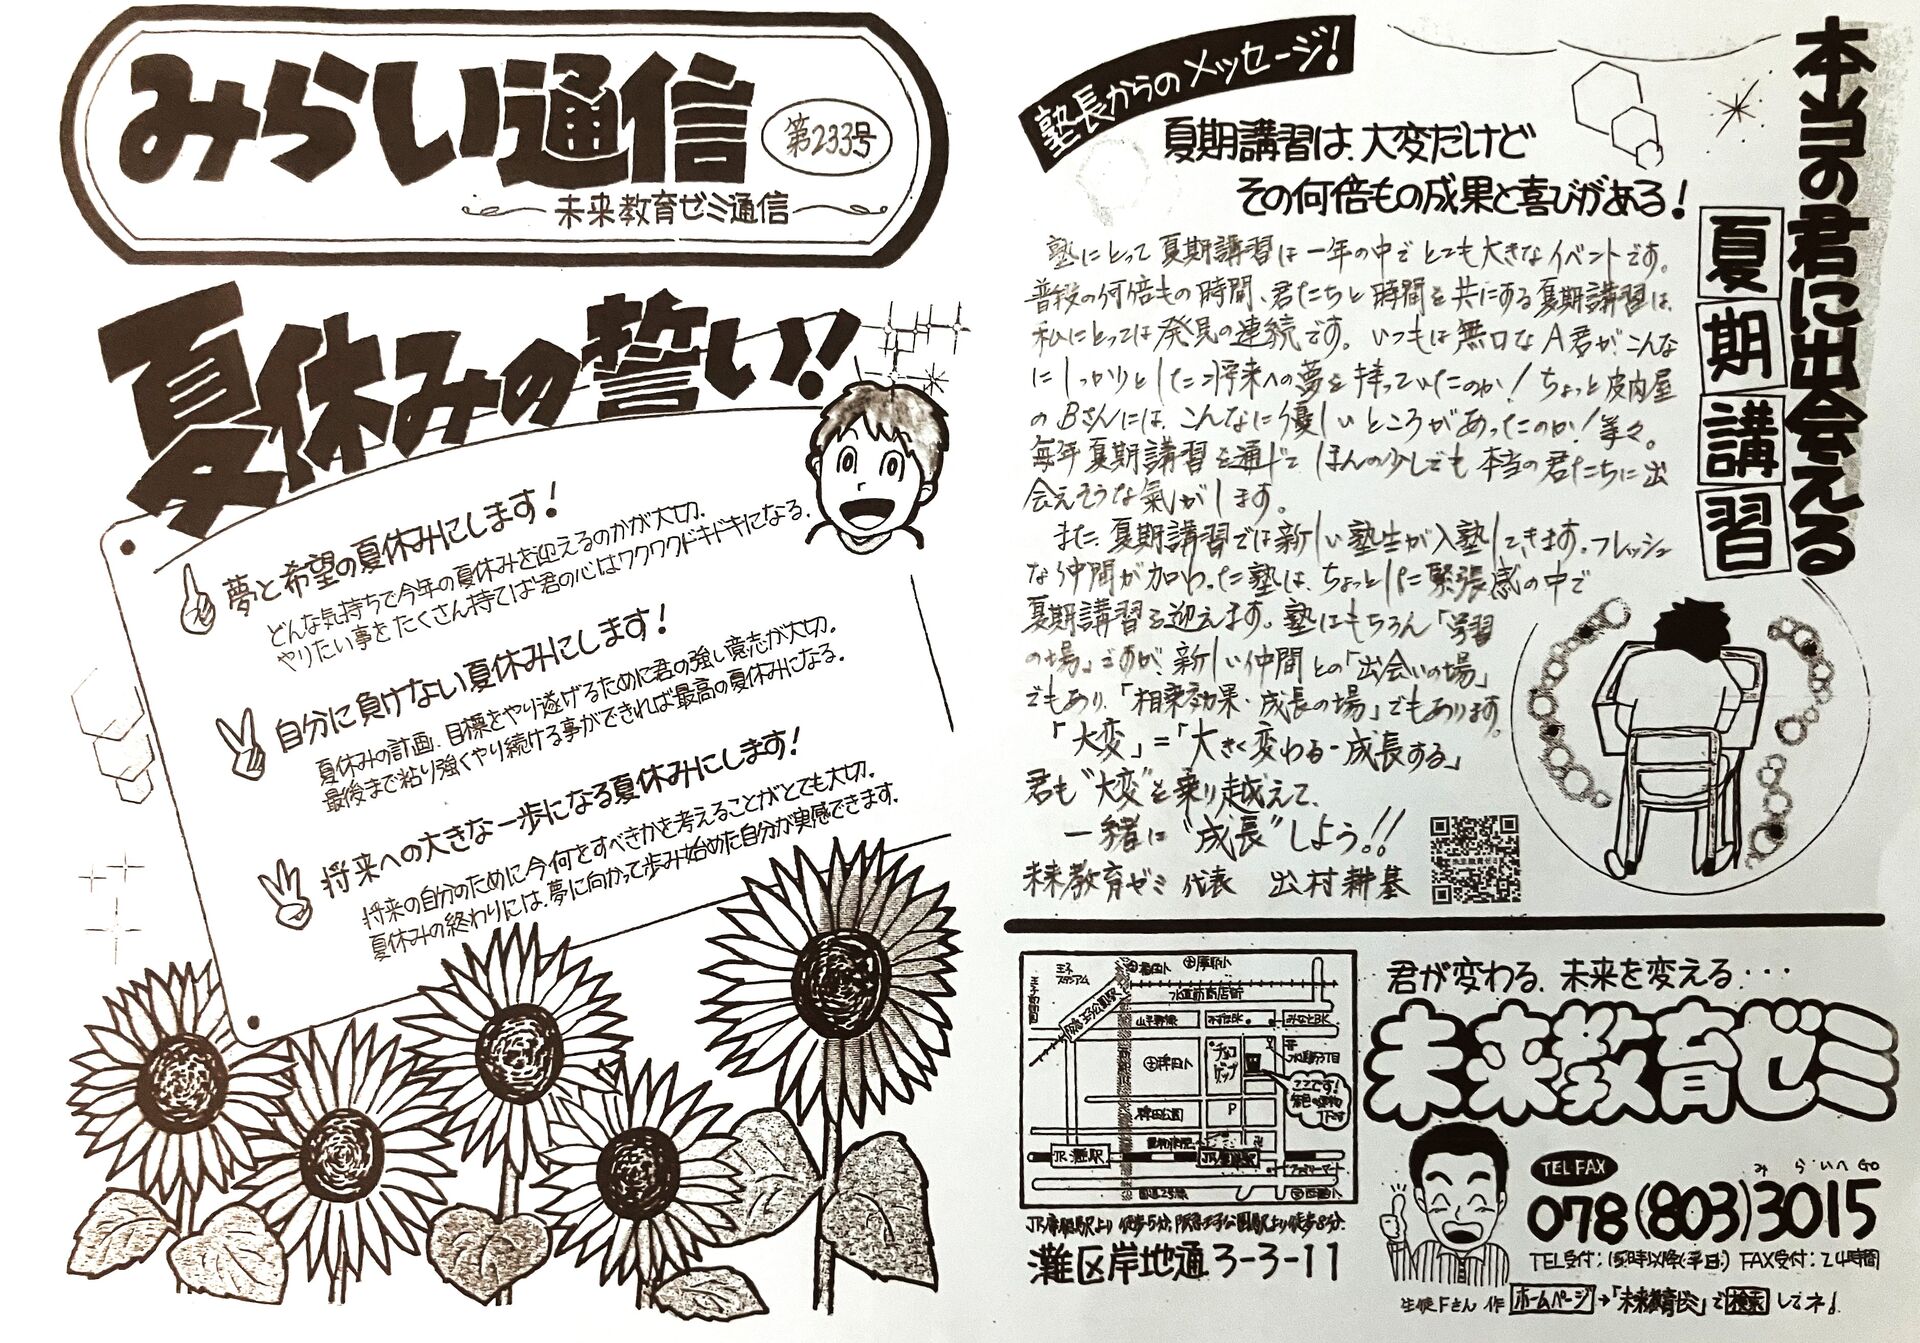 みらい通信
第233号
未来教育ゼミ通信
夏休みの誓い!
夢と希望の夏休みにします!
どんな気持ちで今年の夏休みを迎えるのかが大切。
やりたい事をたくさん持てば君の心はワクワクドキドキになる。
自分に負けない夏休みにします!
夏休みの計画、目標をやり遂げるために君の強い意志が大切。
最後まで粘り強くやり続ける事ができれば最高の夏休みになる。
将来への大きな一歩になる夏休みにします!
将来の自分のために今何をすべきかを考えることがとても大切。
夏休みの終わりには、夢に向かって歩み始めた自分が実感できます。
本当の君に出会える
夏期講習
塾長からのメッセージ!
夏期講習は、大変だけど
その何倍もの成果と喜びがある!
塾にとって夏期講習は一年の中でとても大きなイベントです。
普段の何倍もの時間、君たちと時間を共にする夏期講習は、
私にとっては発見の連続です。いつもは無口なA君が、こんな
にしっかりとした将来への夢を持っていたのか!ちょっと皮肉屋
のBさんには、こんなに優しいところがあったのか!等々。
毎年夏期講習を通じてほんの少しでも本当の君たちに出
会えそうな氣がします。
また、夏期講習では新しい塾生が入塾してきます。フレッシュ
な仲間が加わった塾は、ちょっとした緊張感の中で
夏期講習を迎えます。塾はもちろん「学習
の場」ですが、新しい仲間との「出会いの場」
でもあり、「相乗効果・成長の場」でもあります。
「大変」=「大きく変わる・成長する」
君も"大変"を乗り越えて、
一緒に"成長"しよう!!
未来教育ゼミ 代表 出村耕基
王子
スタジアム
水道筋商店街
阪急王子公園駅
山手幹線
みずほBK
みなとBK
水道筋3丁目
チェコ
リップ
ここです!
稗田公園
P
JR灘駅
JR摩耶駅
ファミリーマート
国道2号線
JR摩耶駅より徒歩5分、阪急王子公園駅より徒歩8分
灘区岸地通3-3-11
君が変わる、未来を変える・・・
未来教育ゼミ
TEL FAX
みらいへGO
078(803)3015
TEL受付:15時以降(平日) FAX受付:24時間
生徒Fさん 作
ホームページ→「未来教育ゼミ」で検索してネ!